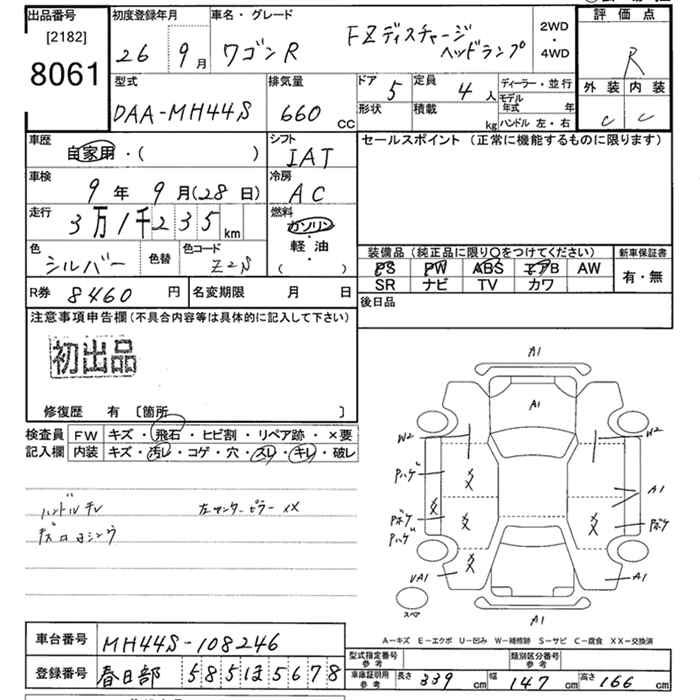 出品番号
[2182]
8061
初度登録年月
26 9月
車名・グレード
ワゴンR FZディスチャージ
ヘッドランプ
2WD
・
4WD
評価点
R
外装 内装
C C
型式
DAA-MH44S
排気量
660 cc
ドア 5
形状
定員 4 人
積載 kg
ディーラー・並行
モデル年式 年
ハンドル 左・右
車歴
自家用・( )
シフト
IAT
車検
9年 9月(28日)
冷房
AC
走行
3万1千235km
燃料
ガソリン
・
軽油
( )
色
シルバー
色替
色コード
Z2S
R券 8460 円
名変期限 月 日
セールスポイント (正常に機能するものに限ります)
装備品(純正品に限り〇をつけてください)
PS PW ABS エアB AW
SR ナビ TV カワ
新車保証書
有・無
後日品
注意事項申告欄(不具合内容等は具体的に記入して下さい)
初出品
修復歴 有 〔箇所 〕
検査員
記入欄
FW キズ・飛石・ヒビ割・リペア跡・×要
内装 キズ・汚レ・コゲ・穴・スレ・キレ・破レ
ハンドルチレ 左センターピラーXX
A1
A1
W2
W2
Pハゲ
XX
A1
XX
Pボケ
XX
XX
Pボケ
Pハゲ
UA1
XX
A1
スペア
A1
A−キズ E−エクボ U−凹み W−補修跡 S−サビ C−腐食 XX−交換済
車台番号 MH44S-108246
登録番号 春日部 585ほ5678
型式指定番号
参考
類別区分番号
参考
車庫証明用
参考
長さ 339 cm 幅 147 cm 高さ 166 cm